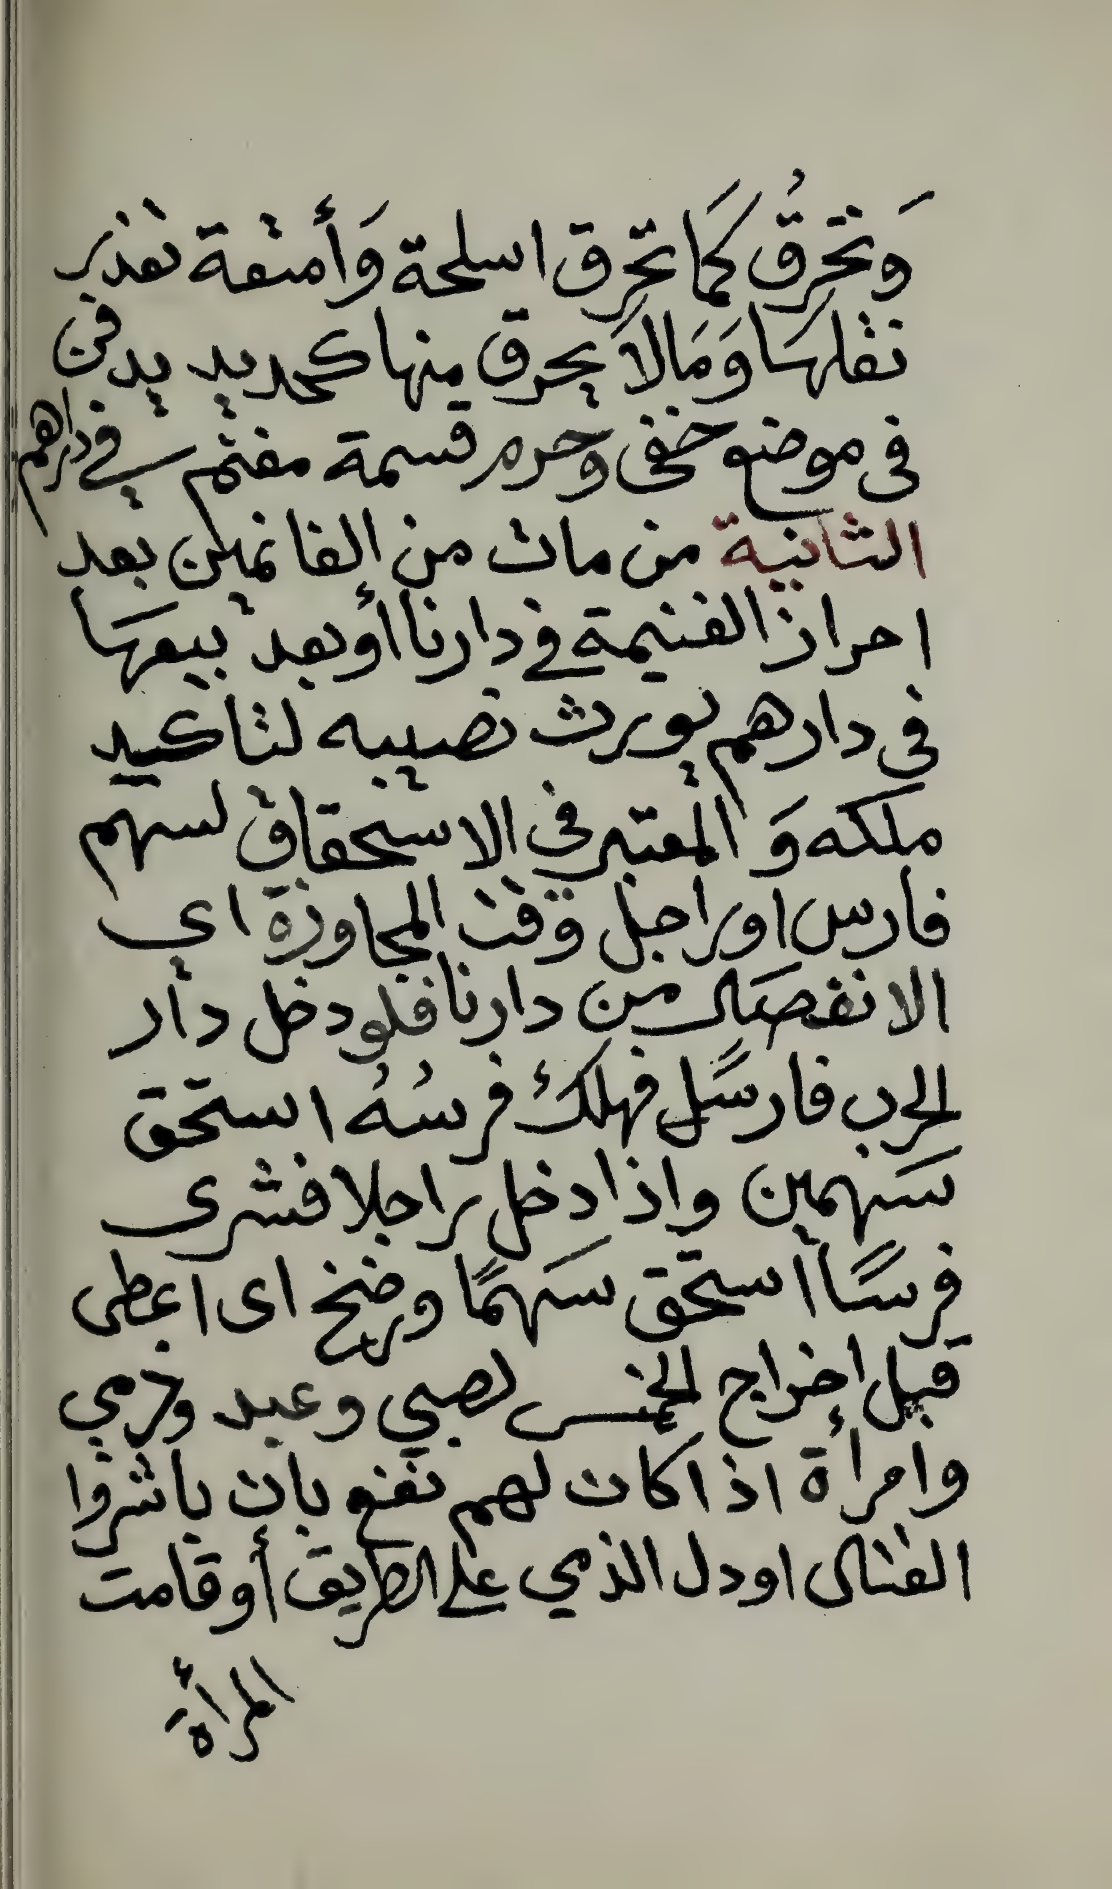 وَتحرقُ كمَا تحرق اسلحة وَأمتعة تعذر
نقلهَا وَمَالاَ يحرق منها كحديد يدفن
في موضع خفي وحرم قسمة مغنم في دارهم
الثانية من مات من الغانمين بعد
احراز الغنيمة في دارنا أو بعد بيعهَا
في دارهم يورث نصيبه لتاكيد
ملكه وَالمعتبر في الاستحقاق لسهم
فارس او راجل وقت المجاوزة اي
الانفصال من دارنا فلو دخل دار
الحرب فارسًا فهلك فرسُهُ استحق
سَهمين واذا دخل راجلا فشرى
فرسًا استحق سَهمًا ورضخ اى اعطى
قبل اخراج الخمس لصبي وعبد وذمي
وامرأة اذا كان لهم نفع بان باشروا
القتال او دل الذمي على الطريق أو قامت
المرأة